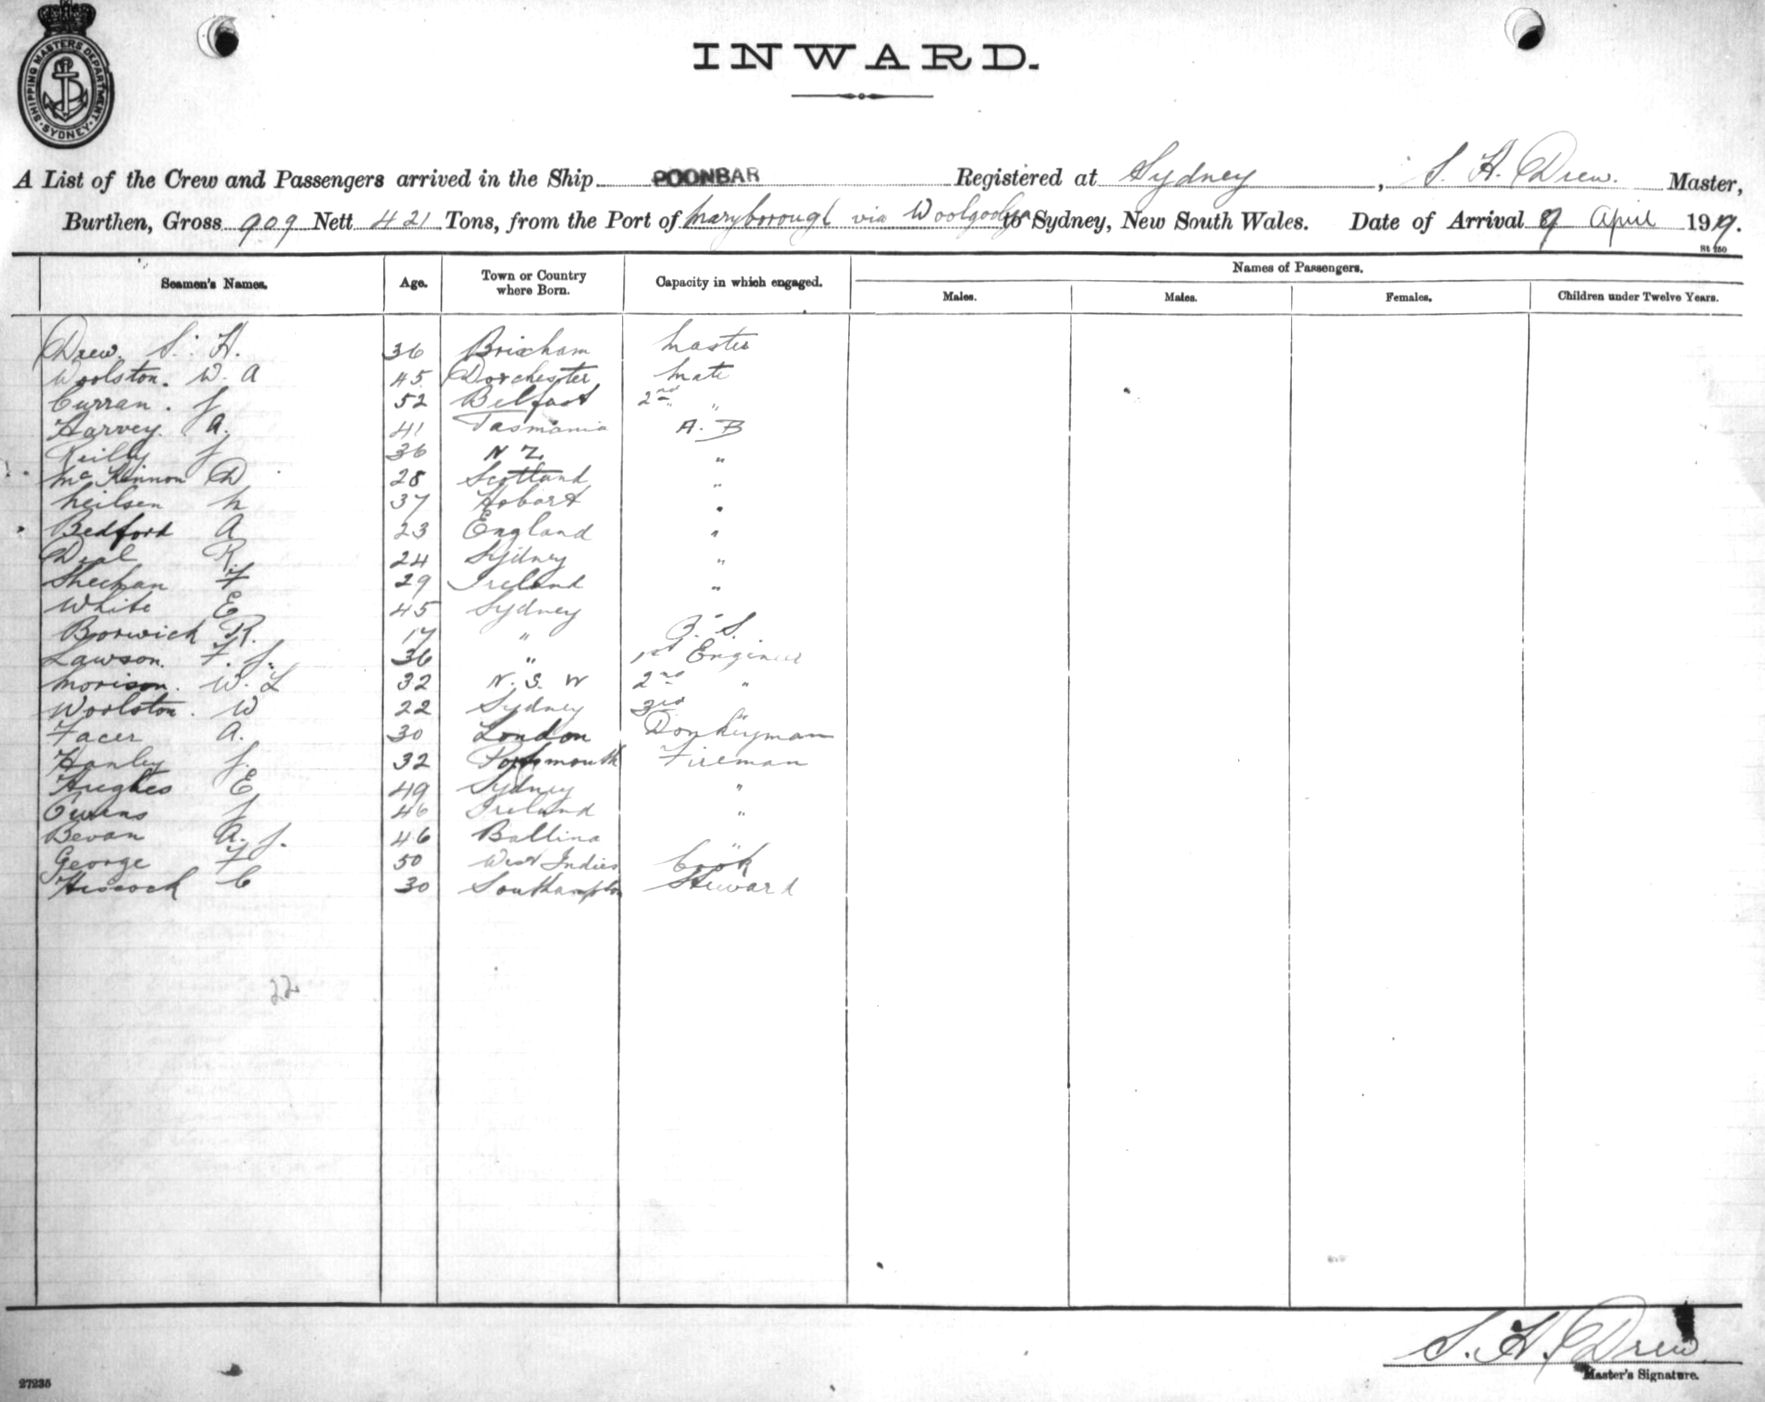 SHIPPING MASTERS DEPARTMENT
SYDNEY
INWARD.
A List of the Crew and Passengers arrived in the Ship POONBAR Registered at Sydney, S. H. Drew. Master,
Burthen, Gross 909 Nett 421 Tons, from the Port of Maryborough via Woolgoolga to Sydney, New South Wales. Date of Arrival 9 April 1919.
Seamen's Names. Age. Town or Country where Born. Capacity in which engaged. Names of Passengers.
Males. Males. Females. Children under Twelve Years.
Drew. S. H. 36 Brixham Master
Woolston. W. A 45 Dorchester Mate
Curran. J 52 Belfast 2nd "
Harvey. A. 41 Tasmania A. B
Reilly J 36 N Z "
McKinnon D 28 Scotland "
Neilsen N 37 Hobart "
Bedford A 23 England "
Deal R. 24 Sydney "
Sheehan F 29 Ireland "
White E 45 Sydney
Borwick R. 17 " B. S.
Lawson. F. J. 36 " 1st Engineer
Morison. W. L 32 N. S. W 2nd "
Woolston. W 22 Sydney 3rd "
Facer A. 30 London Donkeyman
Hanley J. 32 Portsmouth Fireman
Hughes E 49 Sydney "
Owens J 46 Ireland "
Bevan A. J. 46 Ballina "
George F 50 West Indies Cook
Hiscock C 30 Southampton Steward
22
S. H. Drew
Master's Signature.
27235